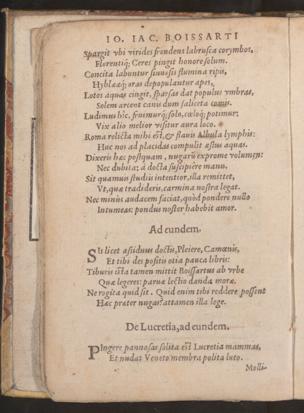 IO. IAC. BOISSARTI
Spargit vbi virides frondens labrusca corymbos,
Florentiq́; Ceres pingit honore solum.
Concita labuntur sinuosis flumina ripis,
Hyblæaq́; oras depopulantur apes,
Lotos aquas cingit, sparsas dat populus vmbras,
Solem arcent cani dum saliceta comis.
Ludimus hîc, fruimurq́; solo, cœloq́; potimur;
Vix alio melior visitur aura loco.
Roma relicta mihi est, & flauis Albula lymphis:
Huc nos ad placidas compulit æstus aquas.
Dixeris hæc postquam, nugarũ exprome volumen:
Nec dubita; à docta suscipiêre manu.
Sit quamuis studiis intentior, illa remittet,
Vt, quæ tradideris, carmina nostra legat.
Nec minùs audacem faciat, quòd pondere nullo
Intumeas: pondus noster habebit amor.
Ad eundem.
SIt licet assiduus doctis, Pleiere, Camœnis,
Et tibi des positis otia pauca libris:
Tiburis ista tamen mittit Boissartus ab vrbe
Quæ legeres: paruæ lectio danda moræ.
Ne rogita quid sit. Quid enim tibi reddere possent
Hæc præter nugas? attamen illa lege.
De Lucretia, ad eundem.
PIngere pannosas solita est Lucretia mammas,
Et nudat Veneto membra polita luto.
Molli-